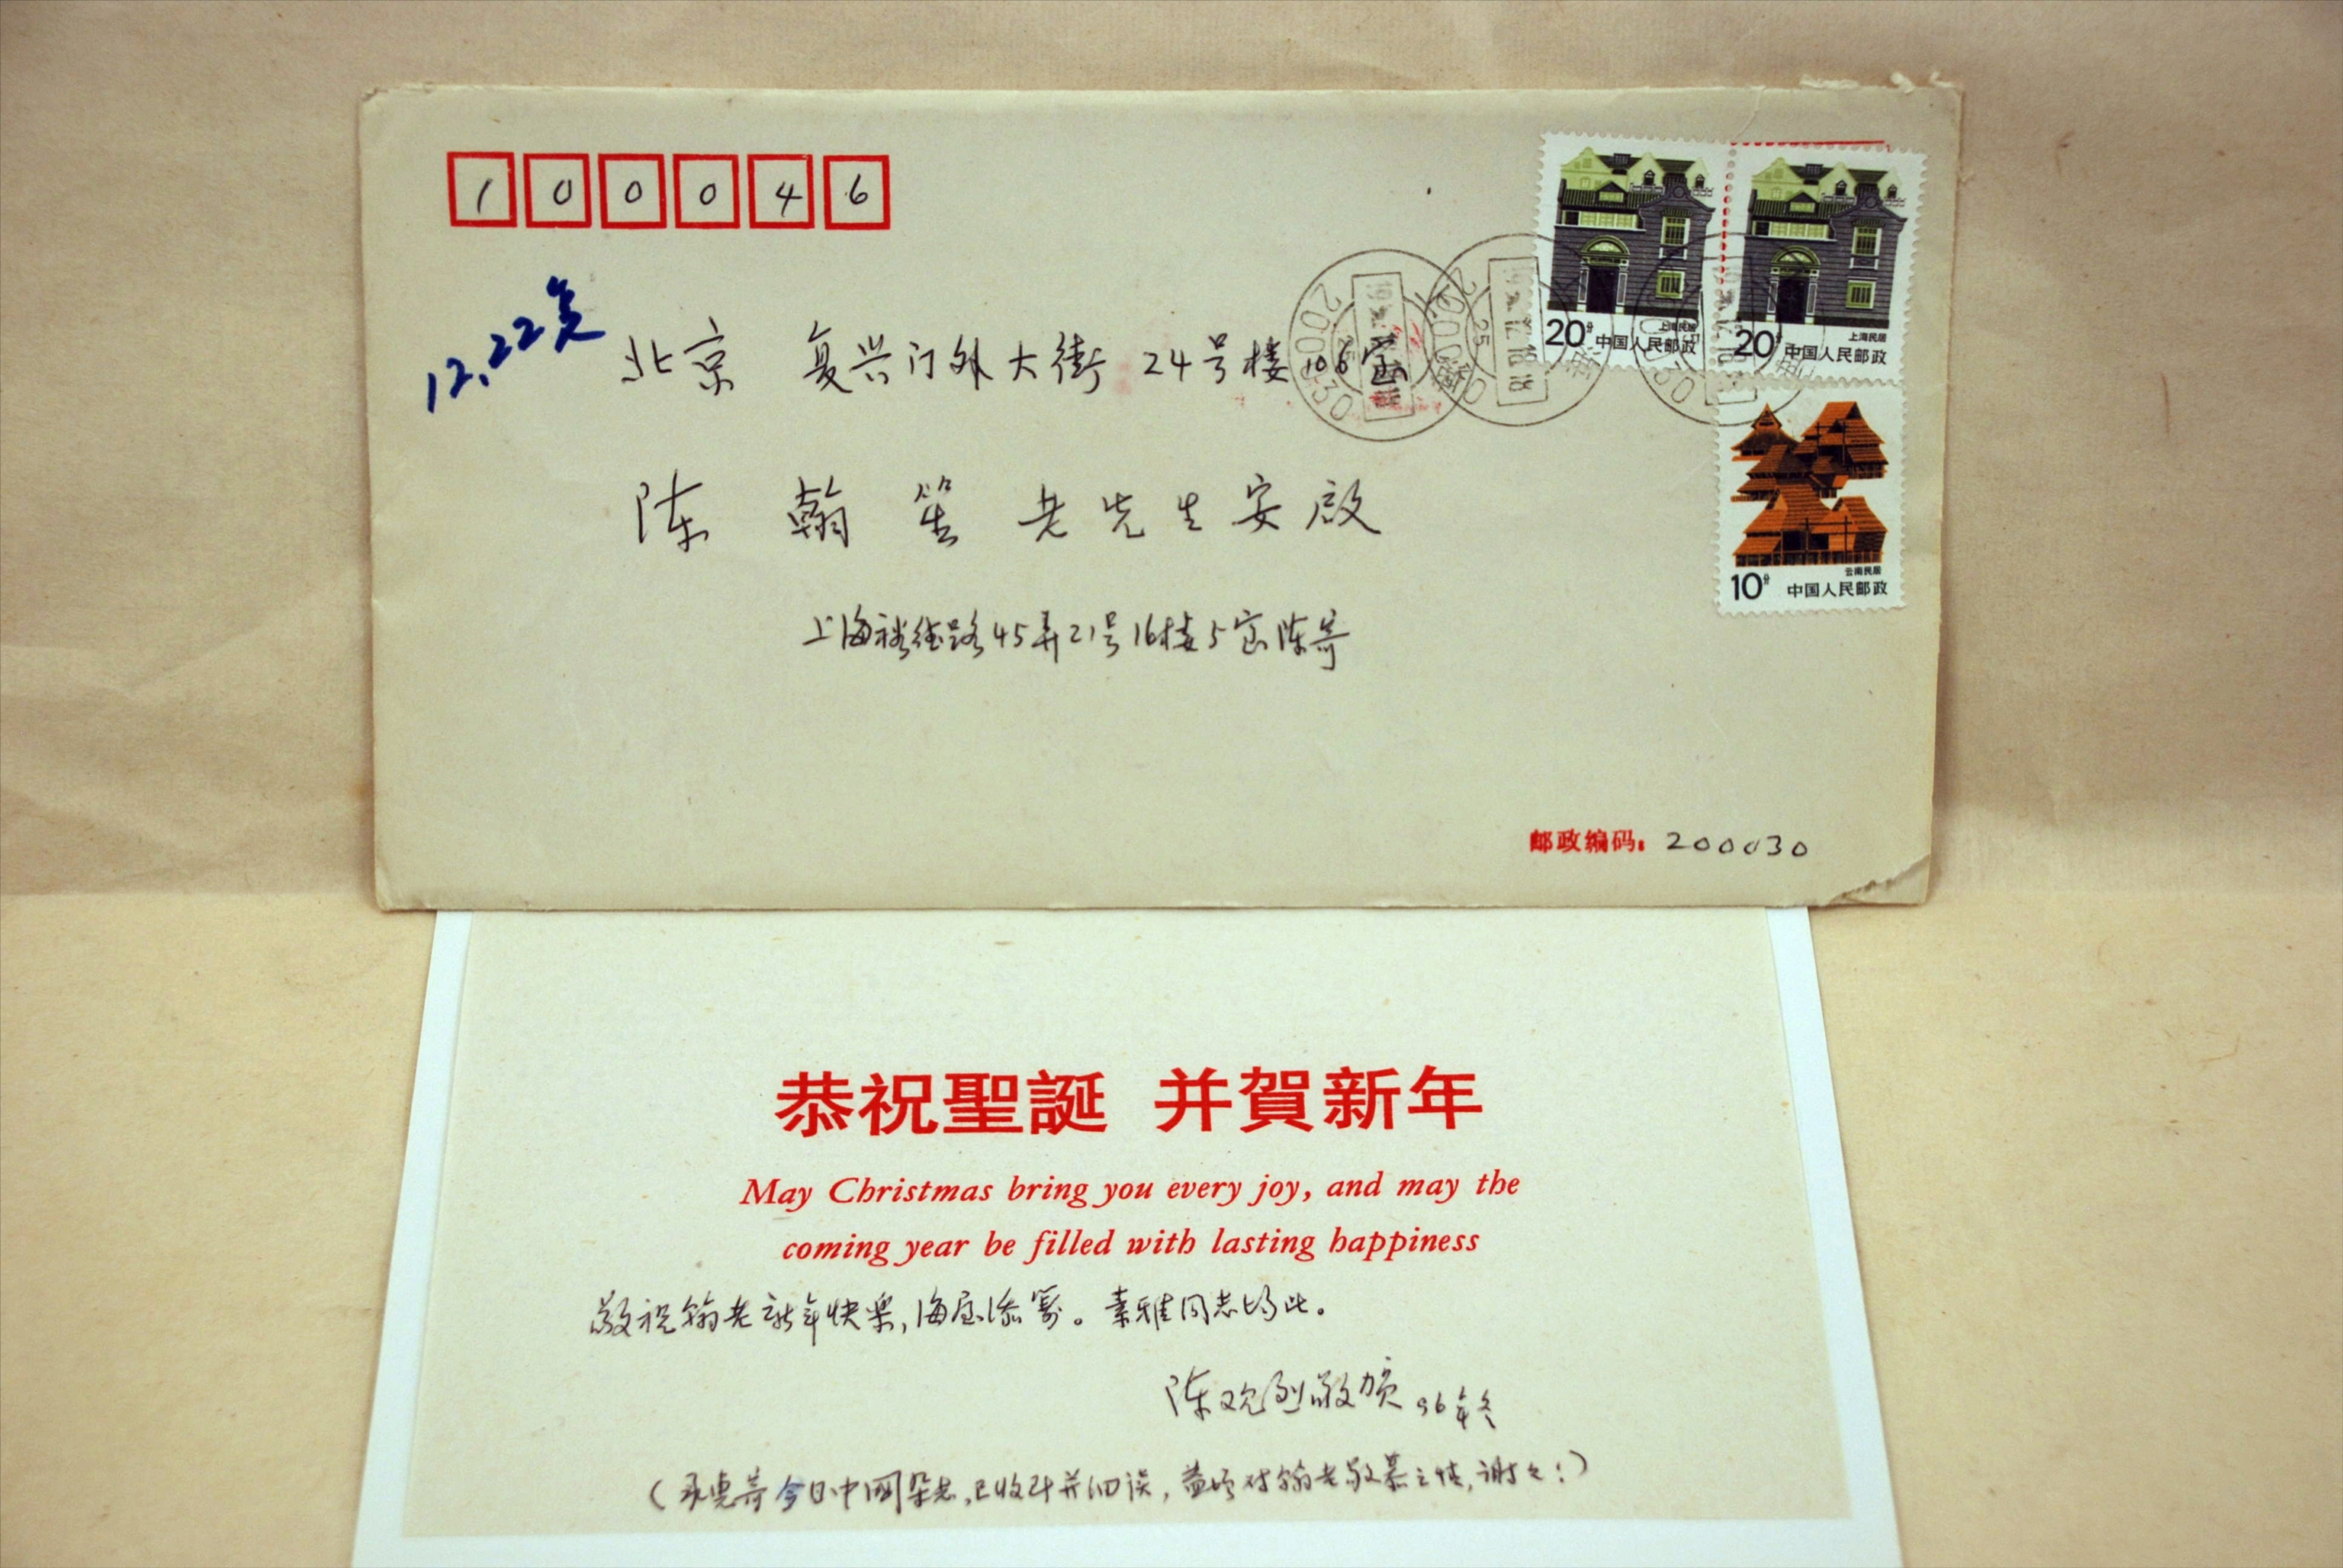 100046
12.22复
北京 复兴门外大街 24号楼 106室
陈 翰笙 老先生安启
上海裕德路45弄21号16楼5室陈寄
20分 上海民居
中国人民邮政
20分 上海民居
中国人民邮政
10分 云南民居
中国人民邮政
200030
邮政编码：200030
恭祝聖誕 并賀新年
May Christmas bring you every joy, and may the
coming year be filled with lasting happiness
敬祝翰老新年快樂，海屋添筹。素雅同志均此。
陈观烈敬贺 96年冬
（承惠寄今日中國杂志，已收到并细读，益增对翰老敬慕之情，谢々！）